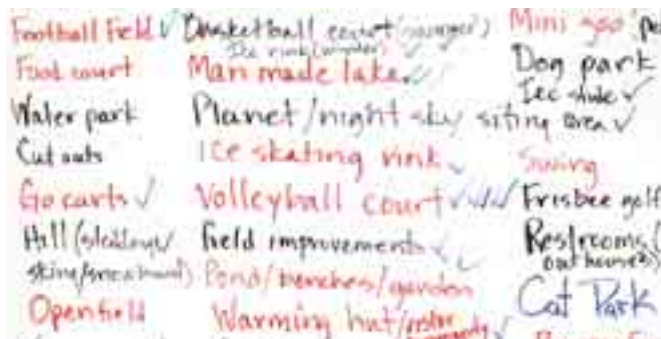 Football Field ✓
Food court
Water park
Cut outs
Go carts ✓
Hill (sledding/
Open field
Basketball court (summer)
Ice rink (winter) ✓ ✓
Man made lake ✓
Planet/night sky siting area ✓
Ice skating rink ✓
Volleyball court ✓
Field improvements ✓
Pond/benches/garden
Warming hut/
Mini
Dog park
Ice slide ✓
Swing
Frisbee golf
Restrooms (
out houses)
Cat Park